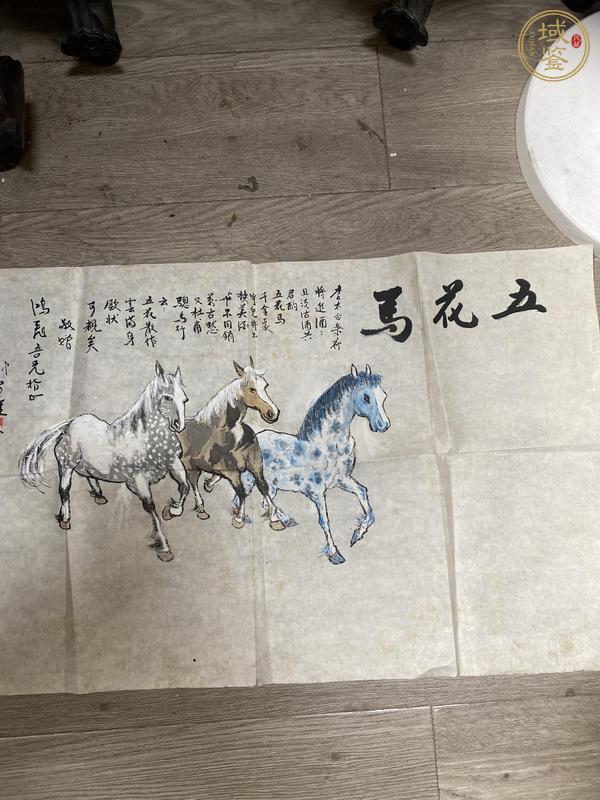 五花馬
李太白樂府
將進酒：
且須沽酒共
君酌
五花馬
千金裘
呼兒將出
換美酒
与尔同銷
萬古愁
又杜甫
驄馬行
云
五花散作
雲滿身
厥狀
可概矣
敬贈
吾兄指正
域鉴